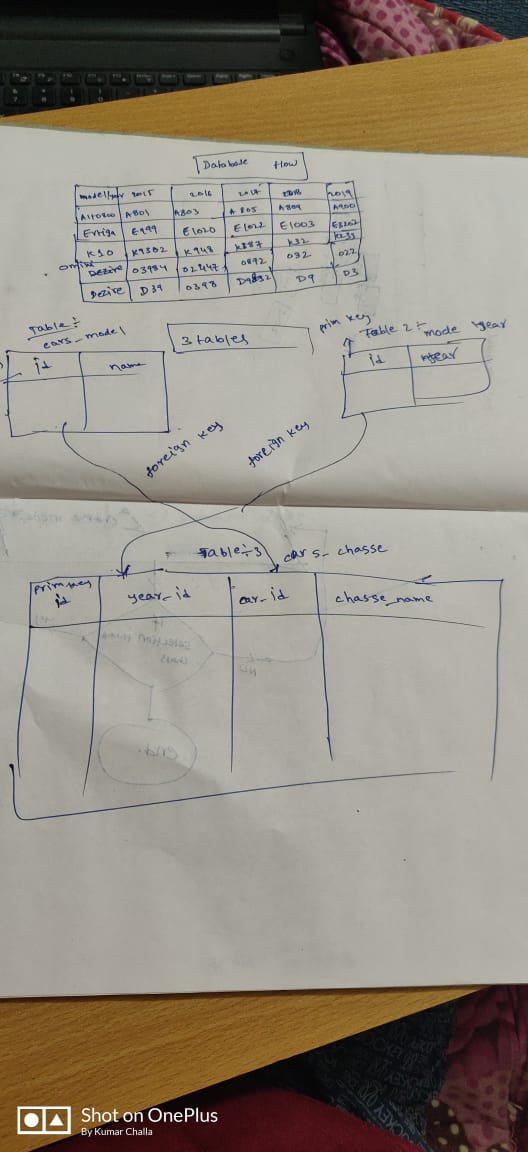 Database flow
model/year 2015 2016 2017 2018 2019
Alto800 A801 A803 A805 A809 A900
Ertiga E999 E1020 E1022 E1003 E3202
K10 K9302 K948 K887 K32 K233
omine Dezire 03984 02447 0892 032 022
Dezire D39 0398 D9832 D9 D3
Table:
cars_model
3 tables
prim key
Table 2: mode year
id name
id year
foreign key
foreign key
Table:3 cars_chasse
prim key
id year_id car_id chasse_name
Shot on OnePlus
By Kumar Challa